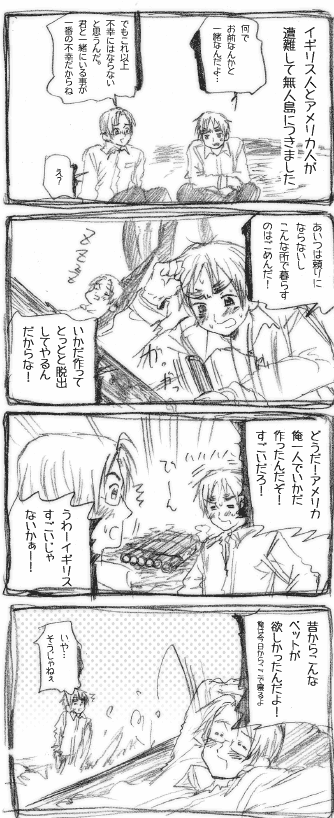 イギリス人とアメリカ人が
遭難して無人島につきました
何で
お前なんかと
一緒なんだよ…
でもこれ以上
不幸にはならない
と思うんだ。
君と一緒にいる事が
一番の不幸だからね
え?
あいつは頼りに
ならないし
こんな所で暮らす
のはごめんだ!
ガッ
ガッ
ZZZZZ
いかだ作って
とっとと脱出
してやるん
だからな!
どうだ!アメリカ
俺一人でいかだ
作ったんだぞ!
すごいだろ!
うわーイギリス
すごいじゃ
ないかぁ!!
昔からこんな
ベットが
欲しかったんだよ!
俺は今日からここで寝るよ
いや…
そうじゃねぇ